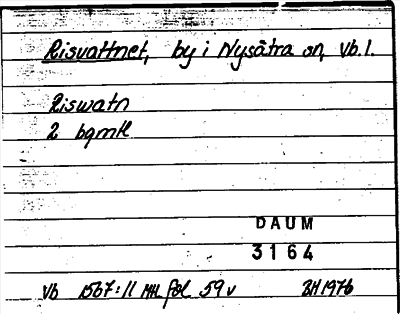 Risvattnet, by i Nysätra sn, Vb. l.
Riswatn
2 bgmtl
DAUM
3164
Vb 1567:11 MtL fol 59 v BH 1976